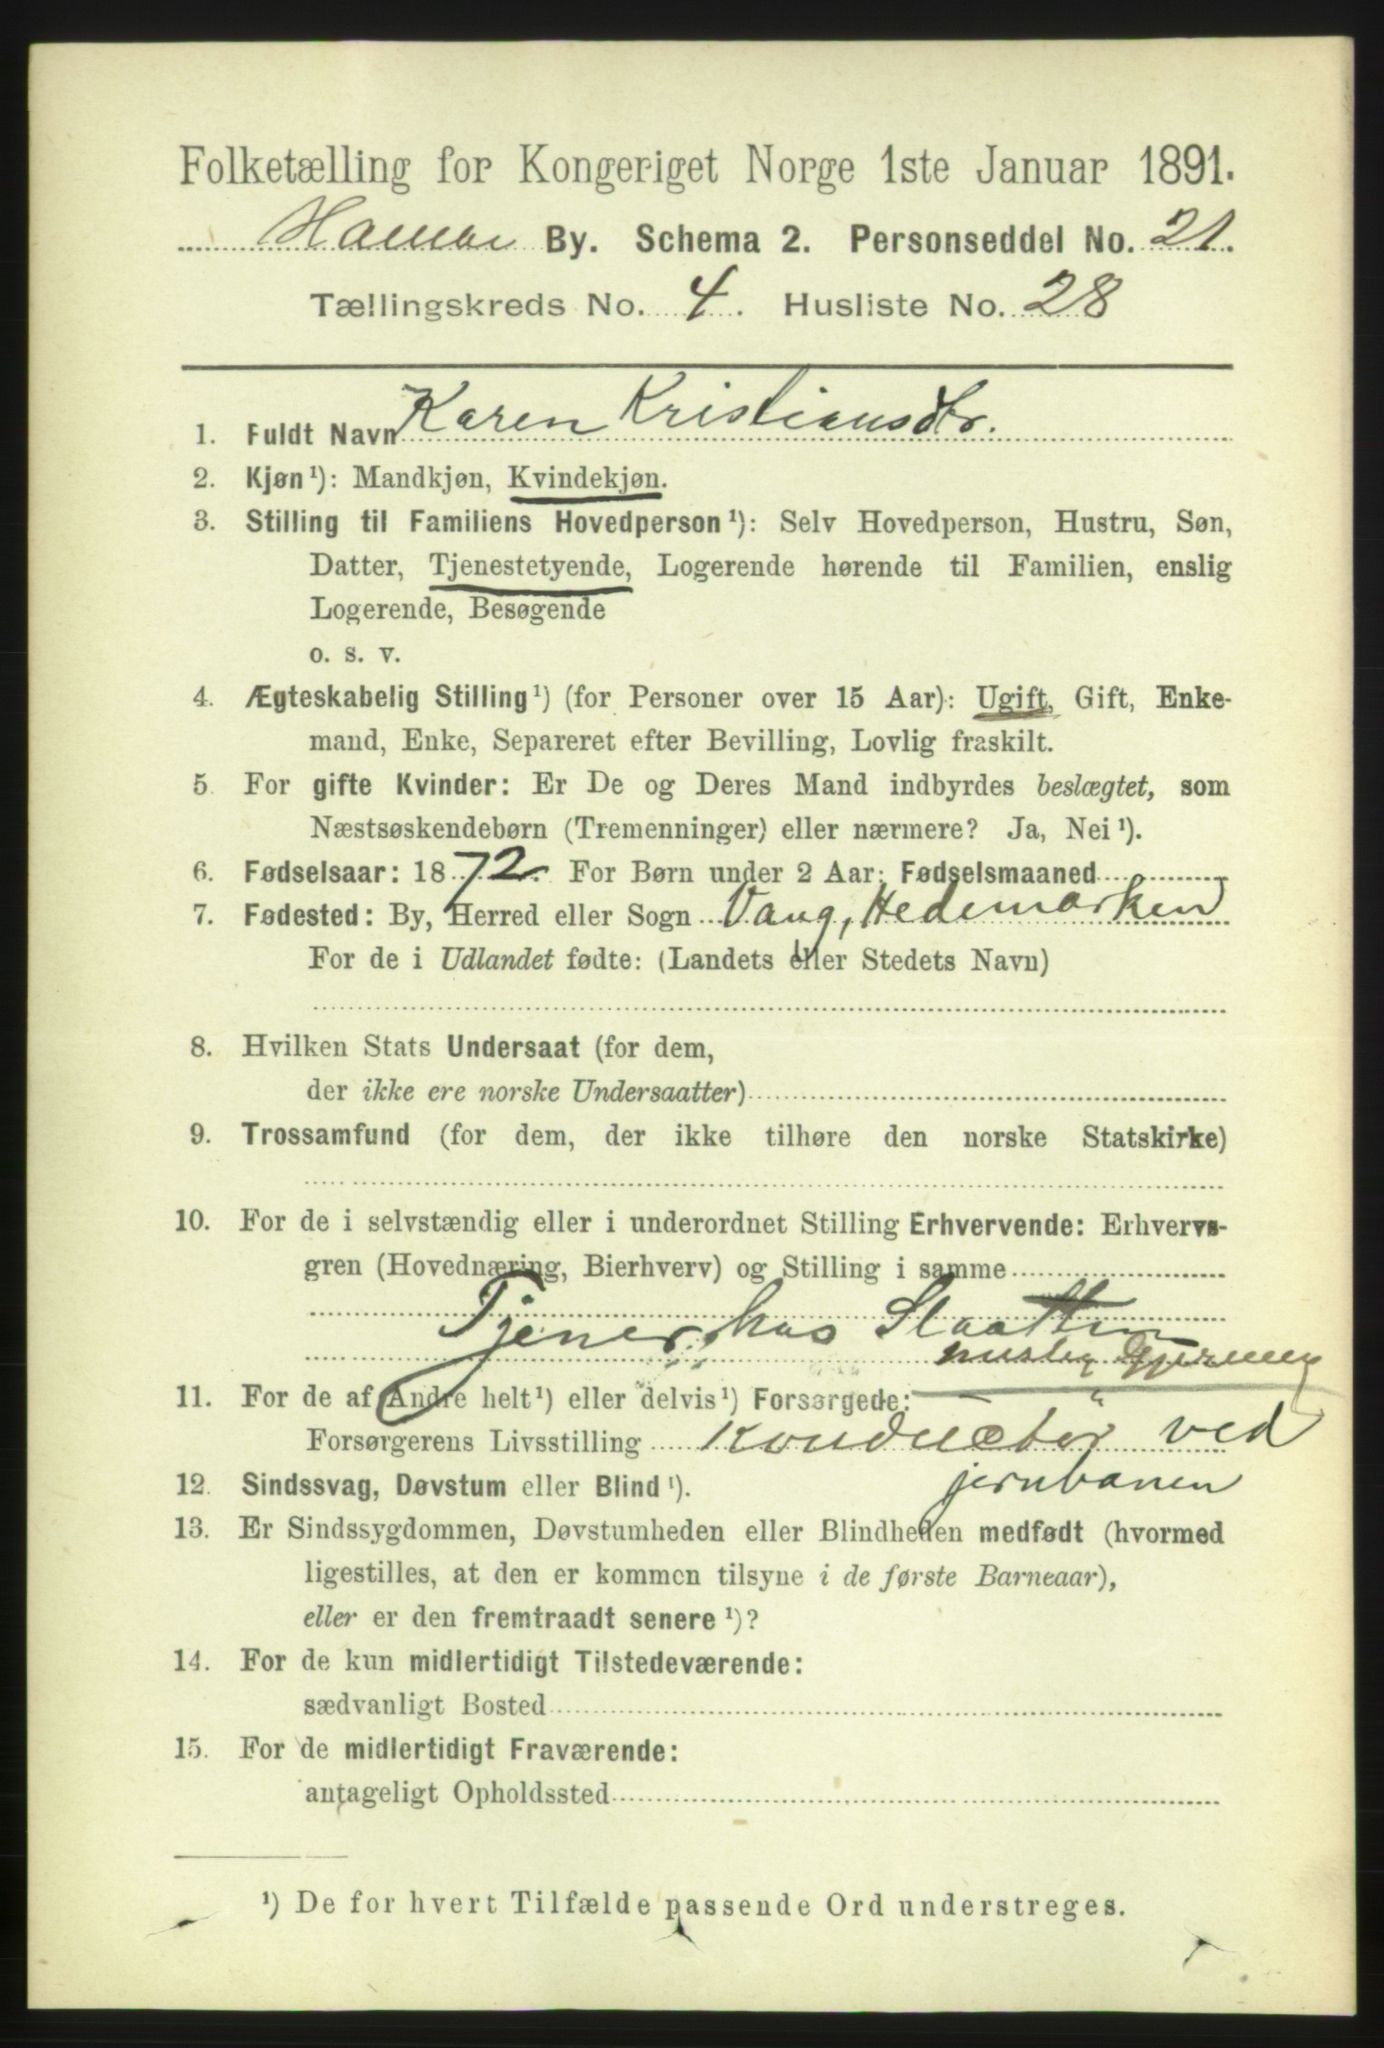 Folketælling for Kongeriget Norge 1ste Januar 1891.
Hamar By. Schema 2. Personseddel No. 21.
Tællingskreds No. 4. Husliste No. 28
1. Fuldt Navn Karen Kristiansdtr.
2. Kjøn ¹): Mandkjøn, Kvindekjøn.
3. Stilling til Familiens Hovedperson ¹): Selv Hovedperson, Hustru, Søn,
Datter, Tjenestetyende, Logerende hørende til Familien, enslig
Logerende, Besøgende
o. s. v.
4. Ægteskabelig Stilling ¹) (for Personer over 15 Aar): Ugift, Gift, Enke-
mand, Enke, Separeret efter Bevilling, Lovlig fraskilt.
5. For gifte Kvinder: Er De og Deres Mand indbyrdes beslægtet, som
Næstsøskendebørn (Tremenninger) eller nærmere? Ja, Nei ¹).
6. Fødselsaar: 1872. For Børn under 2 Aar: Fødselsmaaned
7. Fødested: By, Herred eller Sogn Vang, Hedemarken
For de i Udlandet fødte: (Landets eller Stedets Navn)
8. Hvilken Stats Undersaat (for dem,
der ikke ere norske Undersaatter)
9. Trossamfund (for dem, der ikke tilhøre den norske Statskirke)
10. For de i selvstændig eller i underordnet Stilling Erhvervende: Erhvervs-
gren (Hovednæring, Bierhverv) og Stilling i samme
Tjener hos Slaatten
huslig Gjerning
11. For de af Andre helt ¹) eller delvis ¹) Forsørgede:
Forsørgerens Livsstilling Konduktør ved
jernbanen
12. Sindssvag, Døvstum eller Blind ¹).
13. Er Sindssygdommen, Døvstumheden eller Blindheden medfødt (hvormed
ligestilles, at den er kommen tilsyne i de første Barneaar),
eller er den fremtraadt senere ¹)?
14. For de kun midlertidigt Tilstedeværende:
sædvanligt Bosted
15. For de midlertidigt Fraværende:
antageligt Opholdssted
¹) De for hvert Tilfælde passende Ord understreges.